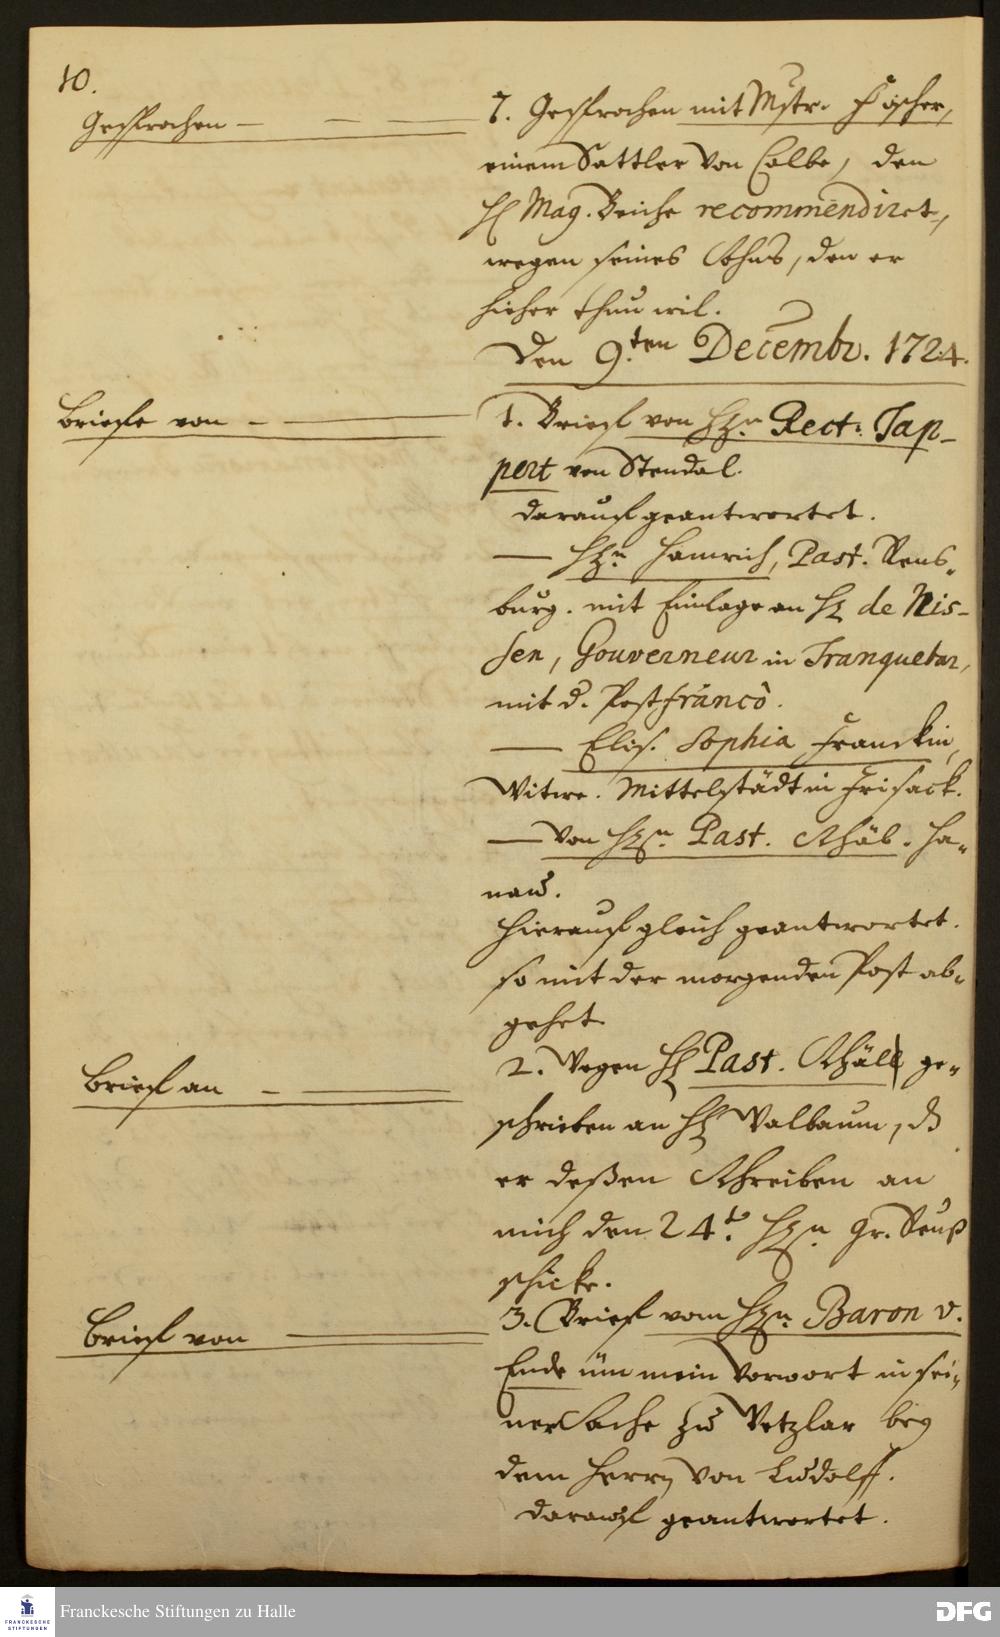 10.
Gesprochen
7. Gesprochen mit Mstr. Fischer,
einem Sattler von Calbe, den
H Mag. Reiche recommendiret,
wegen seines Sohns, den er
hieher thun wil.
Den 9.ten Decembr. 1724.
Briefe von
1. Brief von HEn. Rect. Tap-
pert von Stendal.
darauf geantwortet.
— HEn. Hemrich, Past. Rens-
burg. mit Einlage an HE de Nis-
sen, Gouverneur in Tranquebar,
mit d. Post franco.
— Elis. Sophia Franckin,
Witwe. Mittelstädt in Frisack.
— von HErn. Past. Schäb. Ha-
nau.
hierauf gleich geantwortet.
so mit der morgenden Post ab-
gehet.
Brief an
2. Wegen H Past. Schäb ge-
schrieben an HE Walbaum, dß
er deßen Schreiben an
mich den 24t. HErn Gr. Reuß
schicke.
Brief von
3. Brief vom HErn. Baron v.
Ende um mein Vorwort in sei-
ner Sache zu Wetzlar bey
dem Herrn von Ludolff.
darauf geantwortet.
Franckesche Stiftungen zu Halle
FRANCKESCHE
STIFTUNGEN
DFG